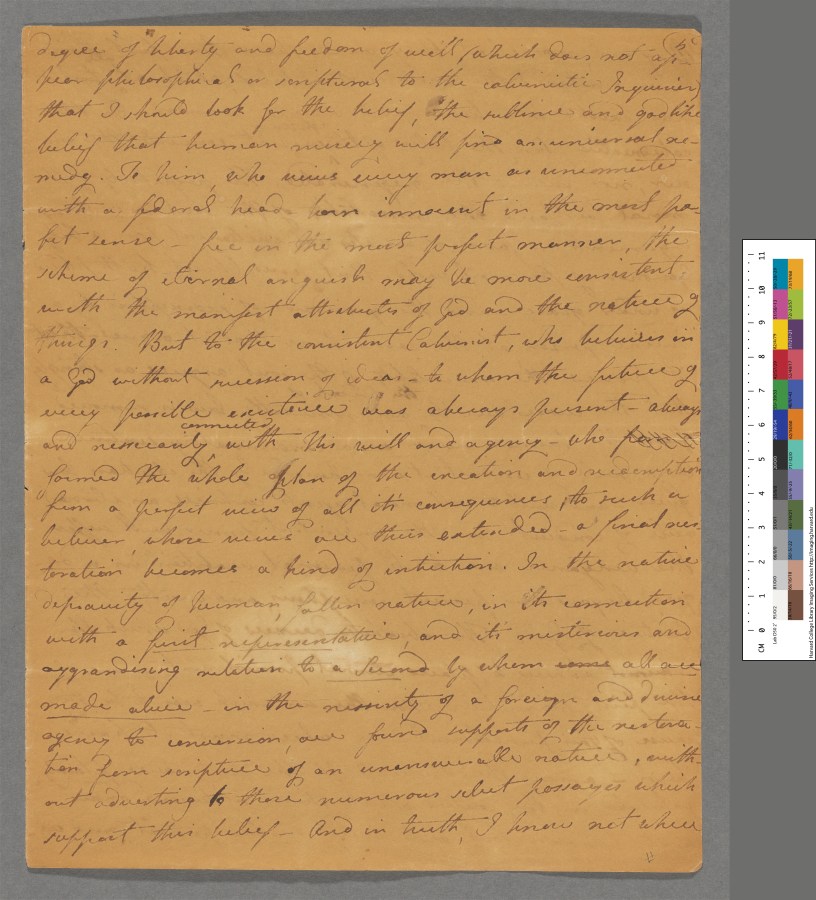 degree of liberty and freedom of will (which does not ap-
pear philosophical or scriptural to the calvinistic Inquirer)
that I should look for the belief, the sublime and godlike
belief that human misery will find an universal re-
medy. To him, who views every man as unconnected
with a federal head born innocent in the most per-
fect sense – free in the most perfect manner, the
scheme of eternal anguish may be more consistent
with the manifest attributes of God and the nature of
things. But to the consistent Calvinist, who believes in
a God without succession of ideas – to whom the future of
every possible existence was always present – always
connected
and necessarily with his will and agency – who
formed the whole plan of the creation and redemption
from a perfect view of all its consequences, to such a
believer, whose views are thus extended – a final res-
toration becomes a kind of intuition. In the native
depravity of human, fallen nature, in its connection
with a first representative, and its misterious and
aggrandising relation to a Second by whom all are
made alive – in the necessity of a foreign and divine
agency to conversion, are found supports of the restora-
tion from scripture of an unanswerable nature, with-
out adverting to those numerous select passages which
support this belief – And in truth, I know not where